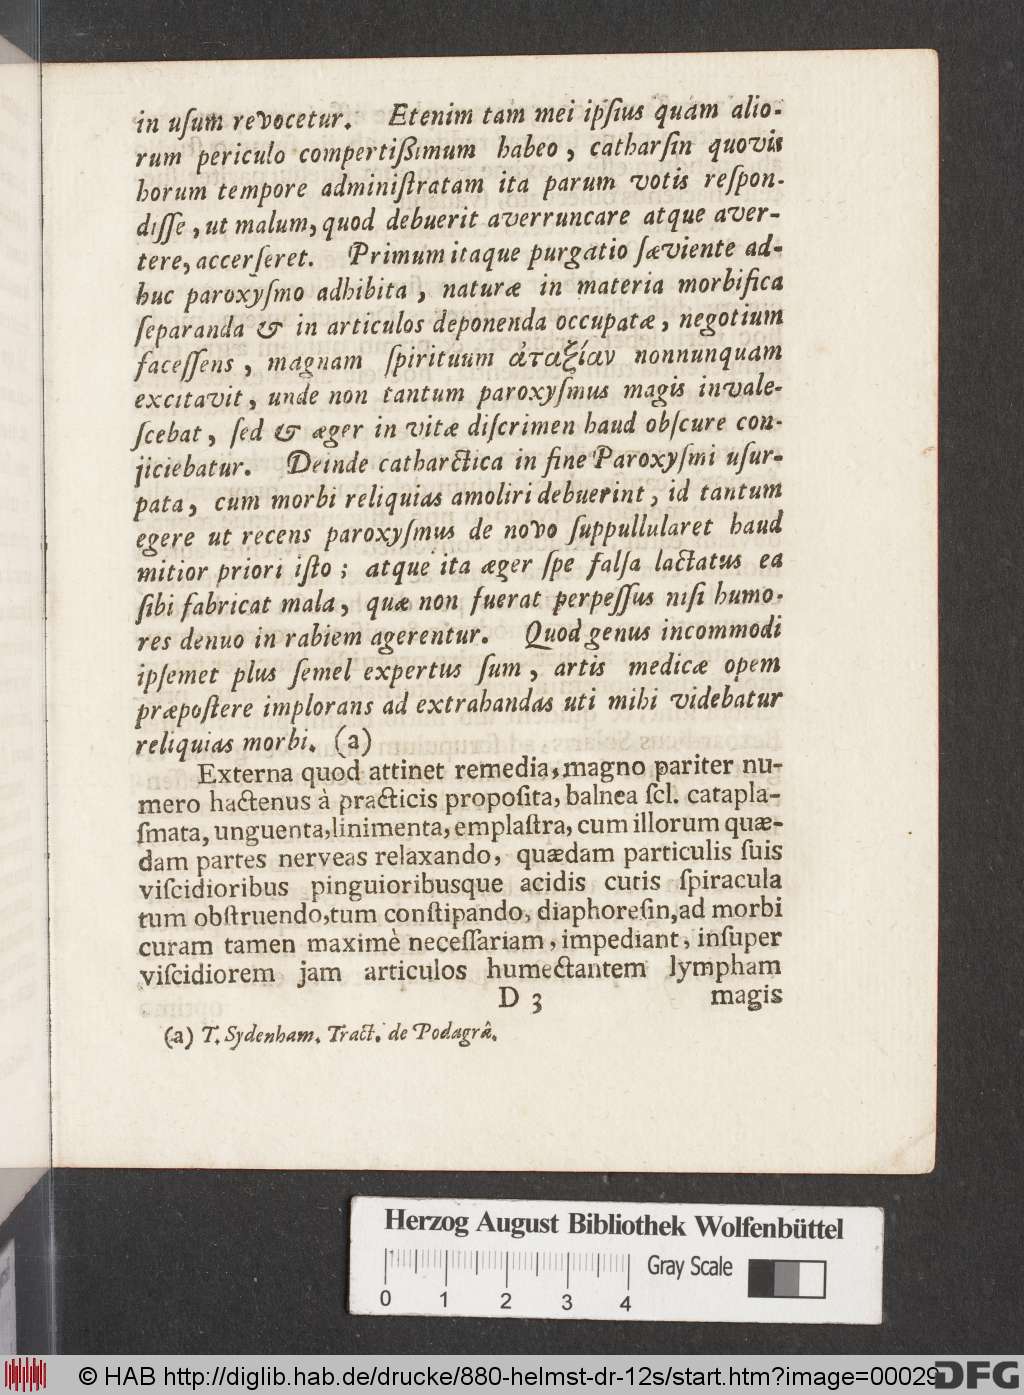 in uſum revocetur. Etenim tam mei ipſius quam alio-
rum periculo compertißimum habeo, catharſin quovis
horum tempore adminiſtratam ita parum votis reſpon-
diſſe, ut malum, quod debuerit averruncare atque aver-
tere, accerſeret. Primum itaque purgatio ſæviente ad-
huc paroxyſmo adhibita, naturæ in materia morbifica
ſeparanda & in articulos deponenda occupatæ, negotium
faceſſens, magnam ſpirituum ἀταξίαν nonnunquam
excitavit, unde non tantum paroxyſmus magis invale-
ſcebat, ſed & æger in vitæ diſcrimen haud obſcure con-
jiciebatur. Deinde catharctica in fine Paroxyſmi uſur-
pata, cum morbi reliquias amoliri debuerint, id tantum
egere ut recens paroxyſmus de novo ſuppullularet haud
mitior priori iſto; atque ita æger ſpe falſa lactatus ea
ſibi fabricat mala, quæ non fuerat perpeſſus niſi humo-
res denuo in rabiem agerentur. Quod genus incommodi
ipſemet plus ſemel expertus ſum, artis medicæ opem
præpoſtere implorans ad extrahandas uti mihi videbatur
reliquias morbi. (a)
Externa quod attinet remedia, magno pariter nu-
mero hactenus à practicis propoſita, balnea ſcl. catapla-
ſmata, unguenta, linimenta, emplaſtra, cum illorum quæ-
dam partes nerveas relaxando, quædam particulis ſuis
viſcidioribus pinguioribusque acidis cutis ſpiracula
tum obſtruendo, tum conſtipando, diaphoreſin, ad morbi
curam tamen maximè neceſſariam, impediant, inſuper
viſcidiorem jam articulos humectantem lympham
D 3 magis
(a) T. Sydenham. Tract. de Podagrâ.
Herzog August Bibliothek Wolfenbüttel
Gray Scale
0 1 2 3 4
© HAB http://diglib.hab.de/drucke/880-helmst-dr-12s/start.htm?image=00029
DFG